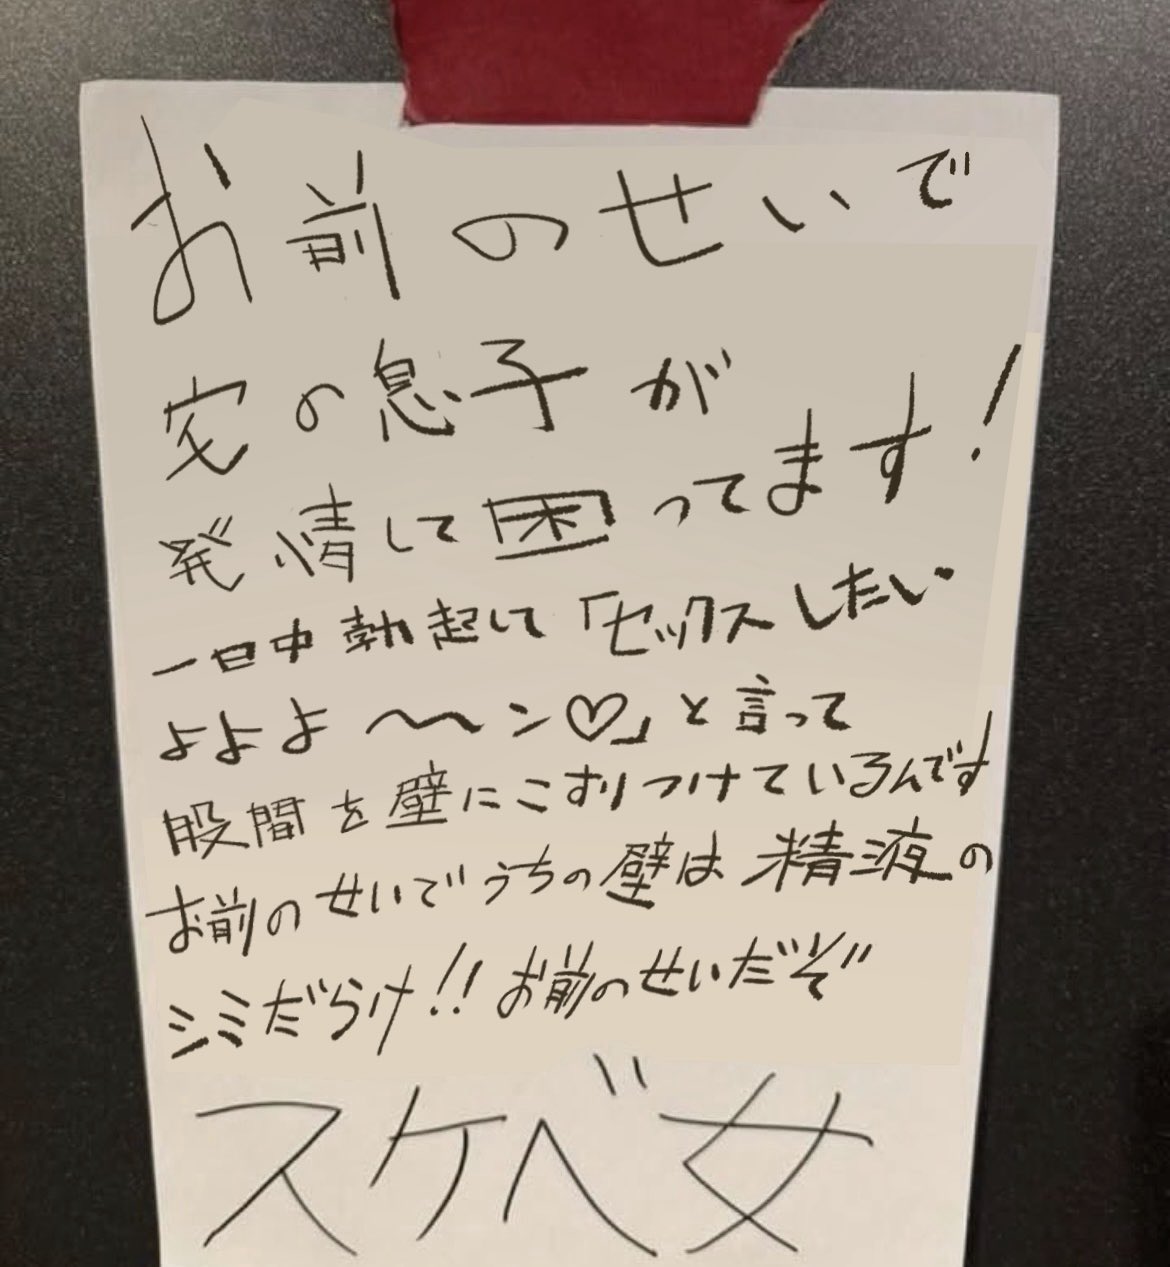 お前のせいで
宅の息子が
発情して困ってます!
一日中勃起して「セックスしたい
よよよ〜ン♡」と言って
股間を壁にこすりつけているんです
お前のせいでうちの壁は精液の
シミだらけ!!お前のせいだぞ
スケベ女